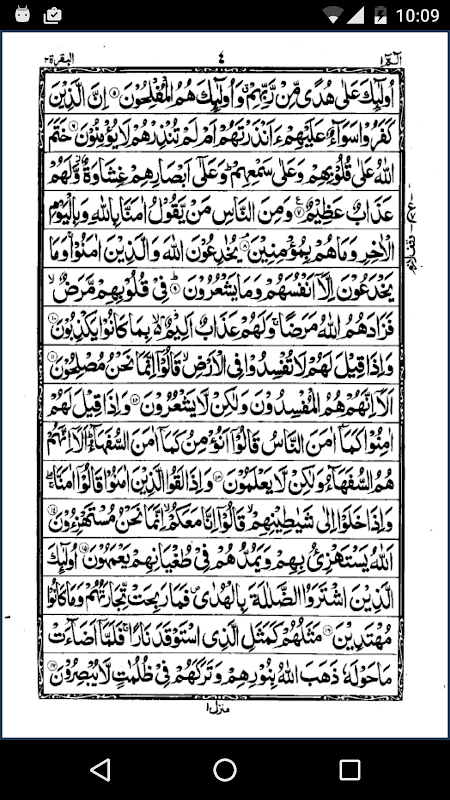 10:09
الٓمّٓ ١
٤
البقرة ٢
اُولٰٓئِكَ عَلٰى هُدًى مِّنْ رَّبِّهِمْ وَاُولٰٓئِكَ هُمُ الْمُفْلِحُوْنَ ۝٥ اِنَّ الَّذِيْنَ
كَفَرُوْا سَوَآءٌ عَلَيْهِمْ ءَاَنْذَرْتَهُمْ اَمْ لَمْ تُنْذِرْهُمْ لَا يُؤْمِنُوْنَ ۝٦ خَتَمَ
اللّٰهُ عَلٰى قُلُوْبِهِمْ وَعَلٰى سَمْعِهِمْ ؕ وَعَلٰٓى اَبْصَارِهِمْ غِشَاوَةٌ ؗ وَّلَهُمْ
عَذَابٌ عَظِيْمٌ ۝٧ وَمِنَ النَّاسِ مَنْ يَّقُوْلُ اٰمَنَّا بِاللّٰهِ وَبِالْيَوْمِ
الْاٰخِرِ وَمَا هُمْ بِمُؤْمِنِيْنَ ۝٨ يُخٰدِعُوْنَ اللّٰهَ وَالَّذِيْنَ اٰمَنُوْا ۚ وَمَا
يَخْدَعُوْنَ اِلَّاۤ اَنْفُسَهُمْ وَمَا يَشْعُرُوْنَ ۝٩ فِيْ قُلُوْبِهِمْ مَّرَضٌ ۙ
فَزَادَهُمُ اللّٰهُ مَرَضًا ۚ وَلَهُمْ عَذَابٌ اَلِيْمٌ ۙ بِمَا كَانُوْا يَكْذِبُوْنَ ۝١٠
وَاِذَا قِيْلَ لَهُمْ لَا تُفْسِدُوْا فِي الْاَرْضِ ۙ قَالُوْٓا اِنَّمَا نَحْنُ مُصْلِحُوْنَ ۝١١
اَلَاۤ اِنَّهُمْ هُمُ الْمُفْسِدُوْنَ وَلٰكِنْ لَّا يَشْعُرُوْنَ ۝١٢ وَاِذَا قِيْلَ لَهُمْ
اٰمِنُوْا كَمَاۤ اٰمَنَ النَّاسُ قَالُوْٓا اَنُؤْمِنُ كَمَاۤ اٰمَنَ السُّفَهَآءُ ؕ اَلَاۤ اِنَّهُمْ
هُمُ السُّفَهَآءُ وَلٰكِنْ لَّا يَعْلَمُوْنَ ۝١٣ وَاِذَا لَقُوا الَّذِيْنَ اٰمَنُوْا قَالُوْٓا اٰمَنَّا ۖ
وَاِذَا خَلَوْا اِلٰى شَيٰطِيْنِهِمْ ۙ قَالُوْٓا اِنَّا مَعَكُمْ ۙ اِنَّمَا نَحْنُ مُسْتَهْزِءُوْنَ ۝١٤
اَللّٰهُ يَسْتَهْزِئُ بِهِمْ وَيَمُدُّهُمْ فِيْ طُغْيَانِهِمْ يَعْمَهُوْنَ ۝١٥ اُولٰٓئِكَ
الَّذِيْنَ اشْتَرَوُا الضَّلٰلَةَ بِالْهُدٰى ۪ فَمَا رَبِحَتْ تِّجَارَتُهُمْ وَمَا كَانُوْا
مُهْتَدِيْنَ ۝١٦ مَثَلُهُمْ كَمَثَلِ الَّذِي اسْتَوْقَدَ نَارًا ۚ فَلَمَّاۤ اَضَآءَتْ
مَا حَوْلَهٗ ذَهَبَ اللّٰهُ بِنُوْرِهِمْ وَتَرَكَهُمْ فِيْ ظُلُمٰتٍ لَّا يُبْصِرُوْنَ ۝١٧
منزل ١